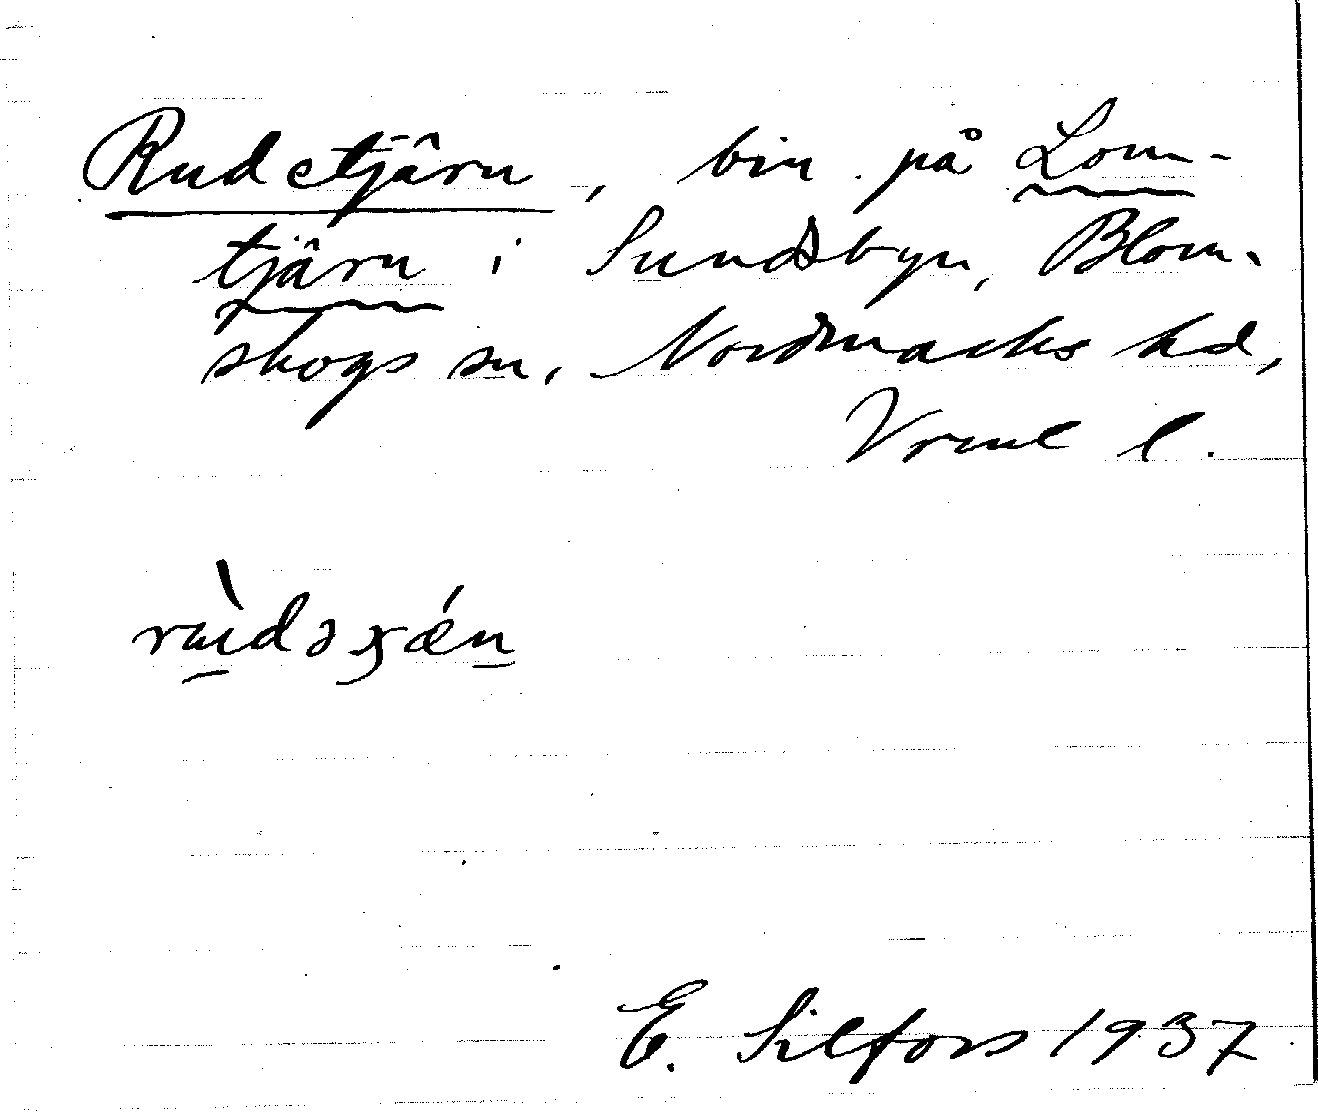 Rudetjärn, bin på Lom-
tjärn i Sundsbyn, Blom-
skogs sn, Nordmarks hd,
Vrml l.
E. Silfors 1937